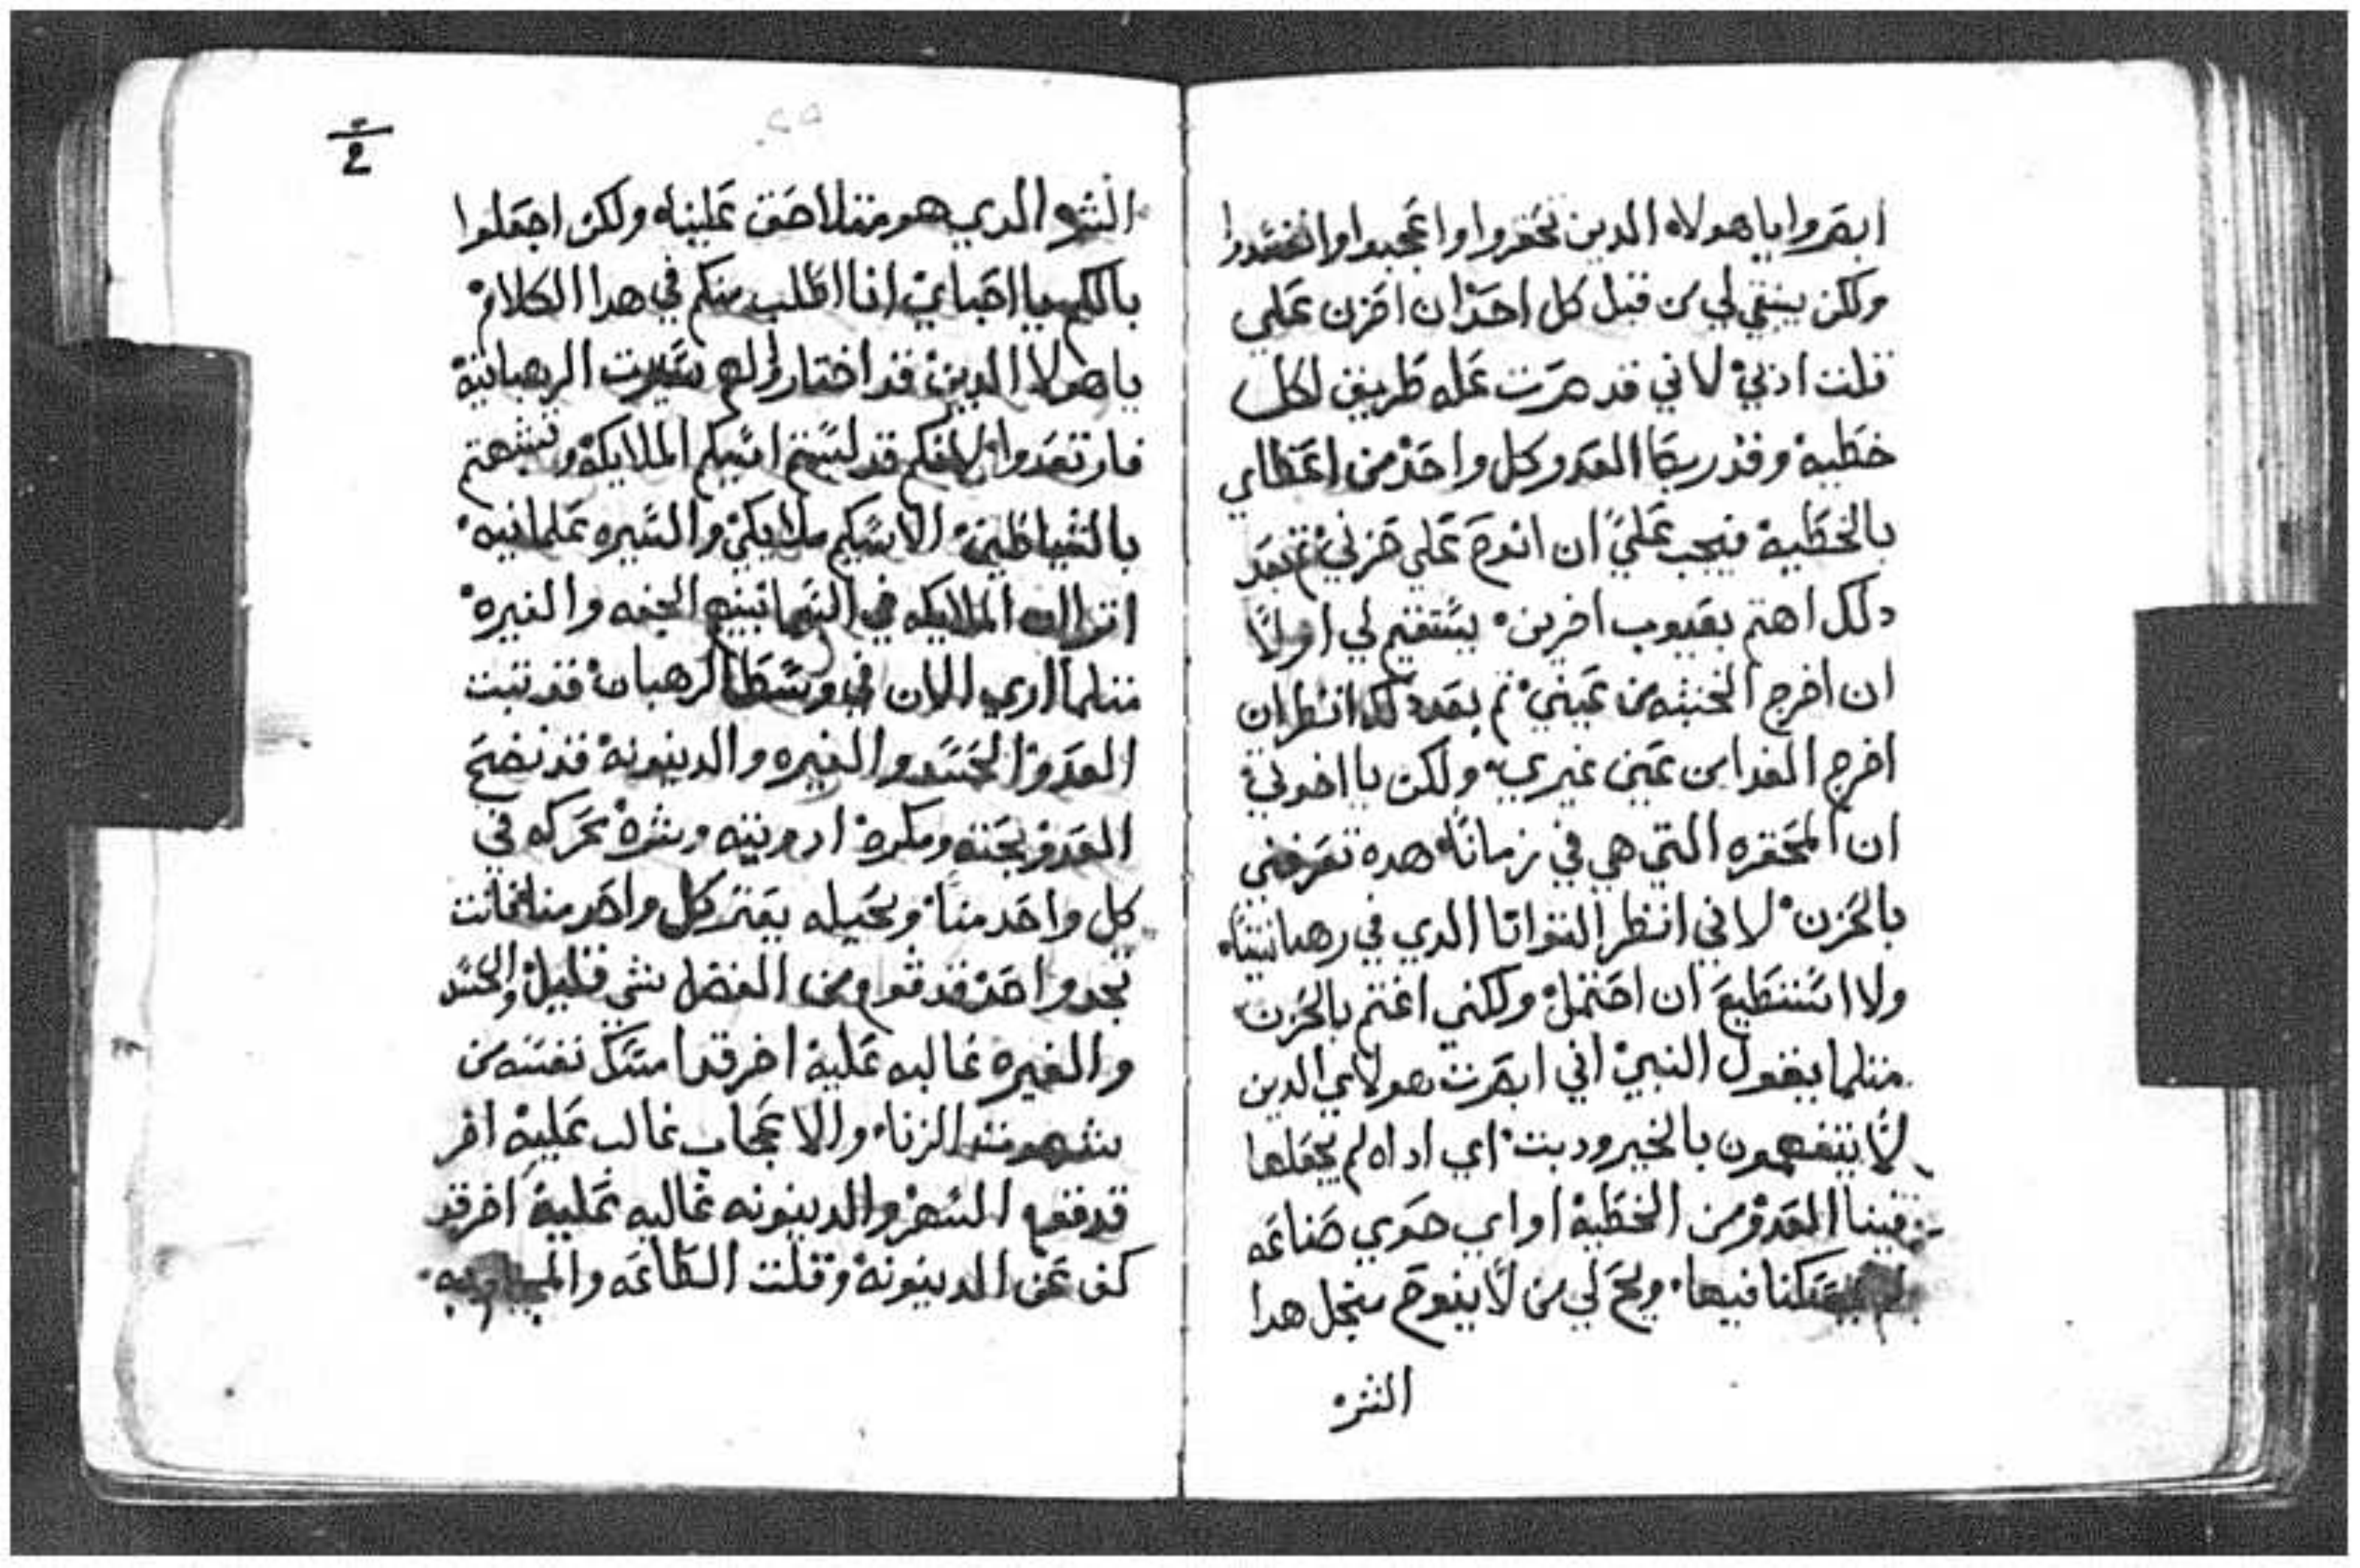 ابصروا يا هولاء الدين تحقروا واعجبوا وانفسدوا
ولكن ينبغي لي من قبل كل احد ان احزن علي
قلت ادبي لاني قد صرت عمله طريق لكل
خطية وقد ربط العدو كل واحد من اعضاي
بالخطية فيجب علي ان انوح علي حزني ثم بعد
دلك اهتم بعيوب اخرين يستقيم لي اولا
ان اخرج الخشبه من عيني ثم بعد دلك انظر ان
اخرج القدا من عين غيري ولكن يا اخوتي
ان المحقره التي هي في زماننا هده تعرفني
بالحزن لاني انظر التوانا الدي في رهبانيتنا
ولا استطيع ان احتمل ولكني اغتم بالحزن
مثلما يقول النبي اني ابصرت هولاي الدين
لا يتفهمون بالخير ودبت اي اداه لم يجعلها
فينا العدو من الخطية او اي هوي صناعه
لم يسكنا فيها ويح لي من لا ينوح منجل هدا
الشر
2
الشر الدي هو مثلا حق علينا ولكن اجعلوا
بالكم يا احباي انا اطلب منكم في هدا الكلام
يا هولا الدين قد اختار لهم سيرت الرهبانية
فارتعدوا لانكم قد لبستم اسكيم الملايكة وتشبهتم
بالشياطين الاسكيم ملايكي والسيره علمانيه
اترا الملايكه في السما بينهم الخيفه والغيرة
مثلما اري الان في وسط الرهبان قد تبت
العدو الحسد والغيره والدينونة قد نضح
العدو بخته ومكره ادويته وشره تحركه في
كل واحد منا وبحيله يعتر كل واحد منا فانت
تجد واحد قد قوم من الفضل شي قليل والحسد
والغيره غالبه علية اخر قد امسك نفسه من
شهوت الزنا والاعجاب غالب علية اخر
قد قهر السهر والدينونه غاليه علية اخر قد
كف عن الدينونة وقلت الطاعه والمجاوبه